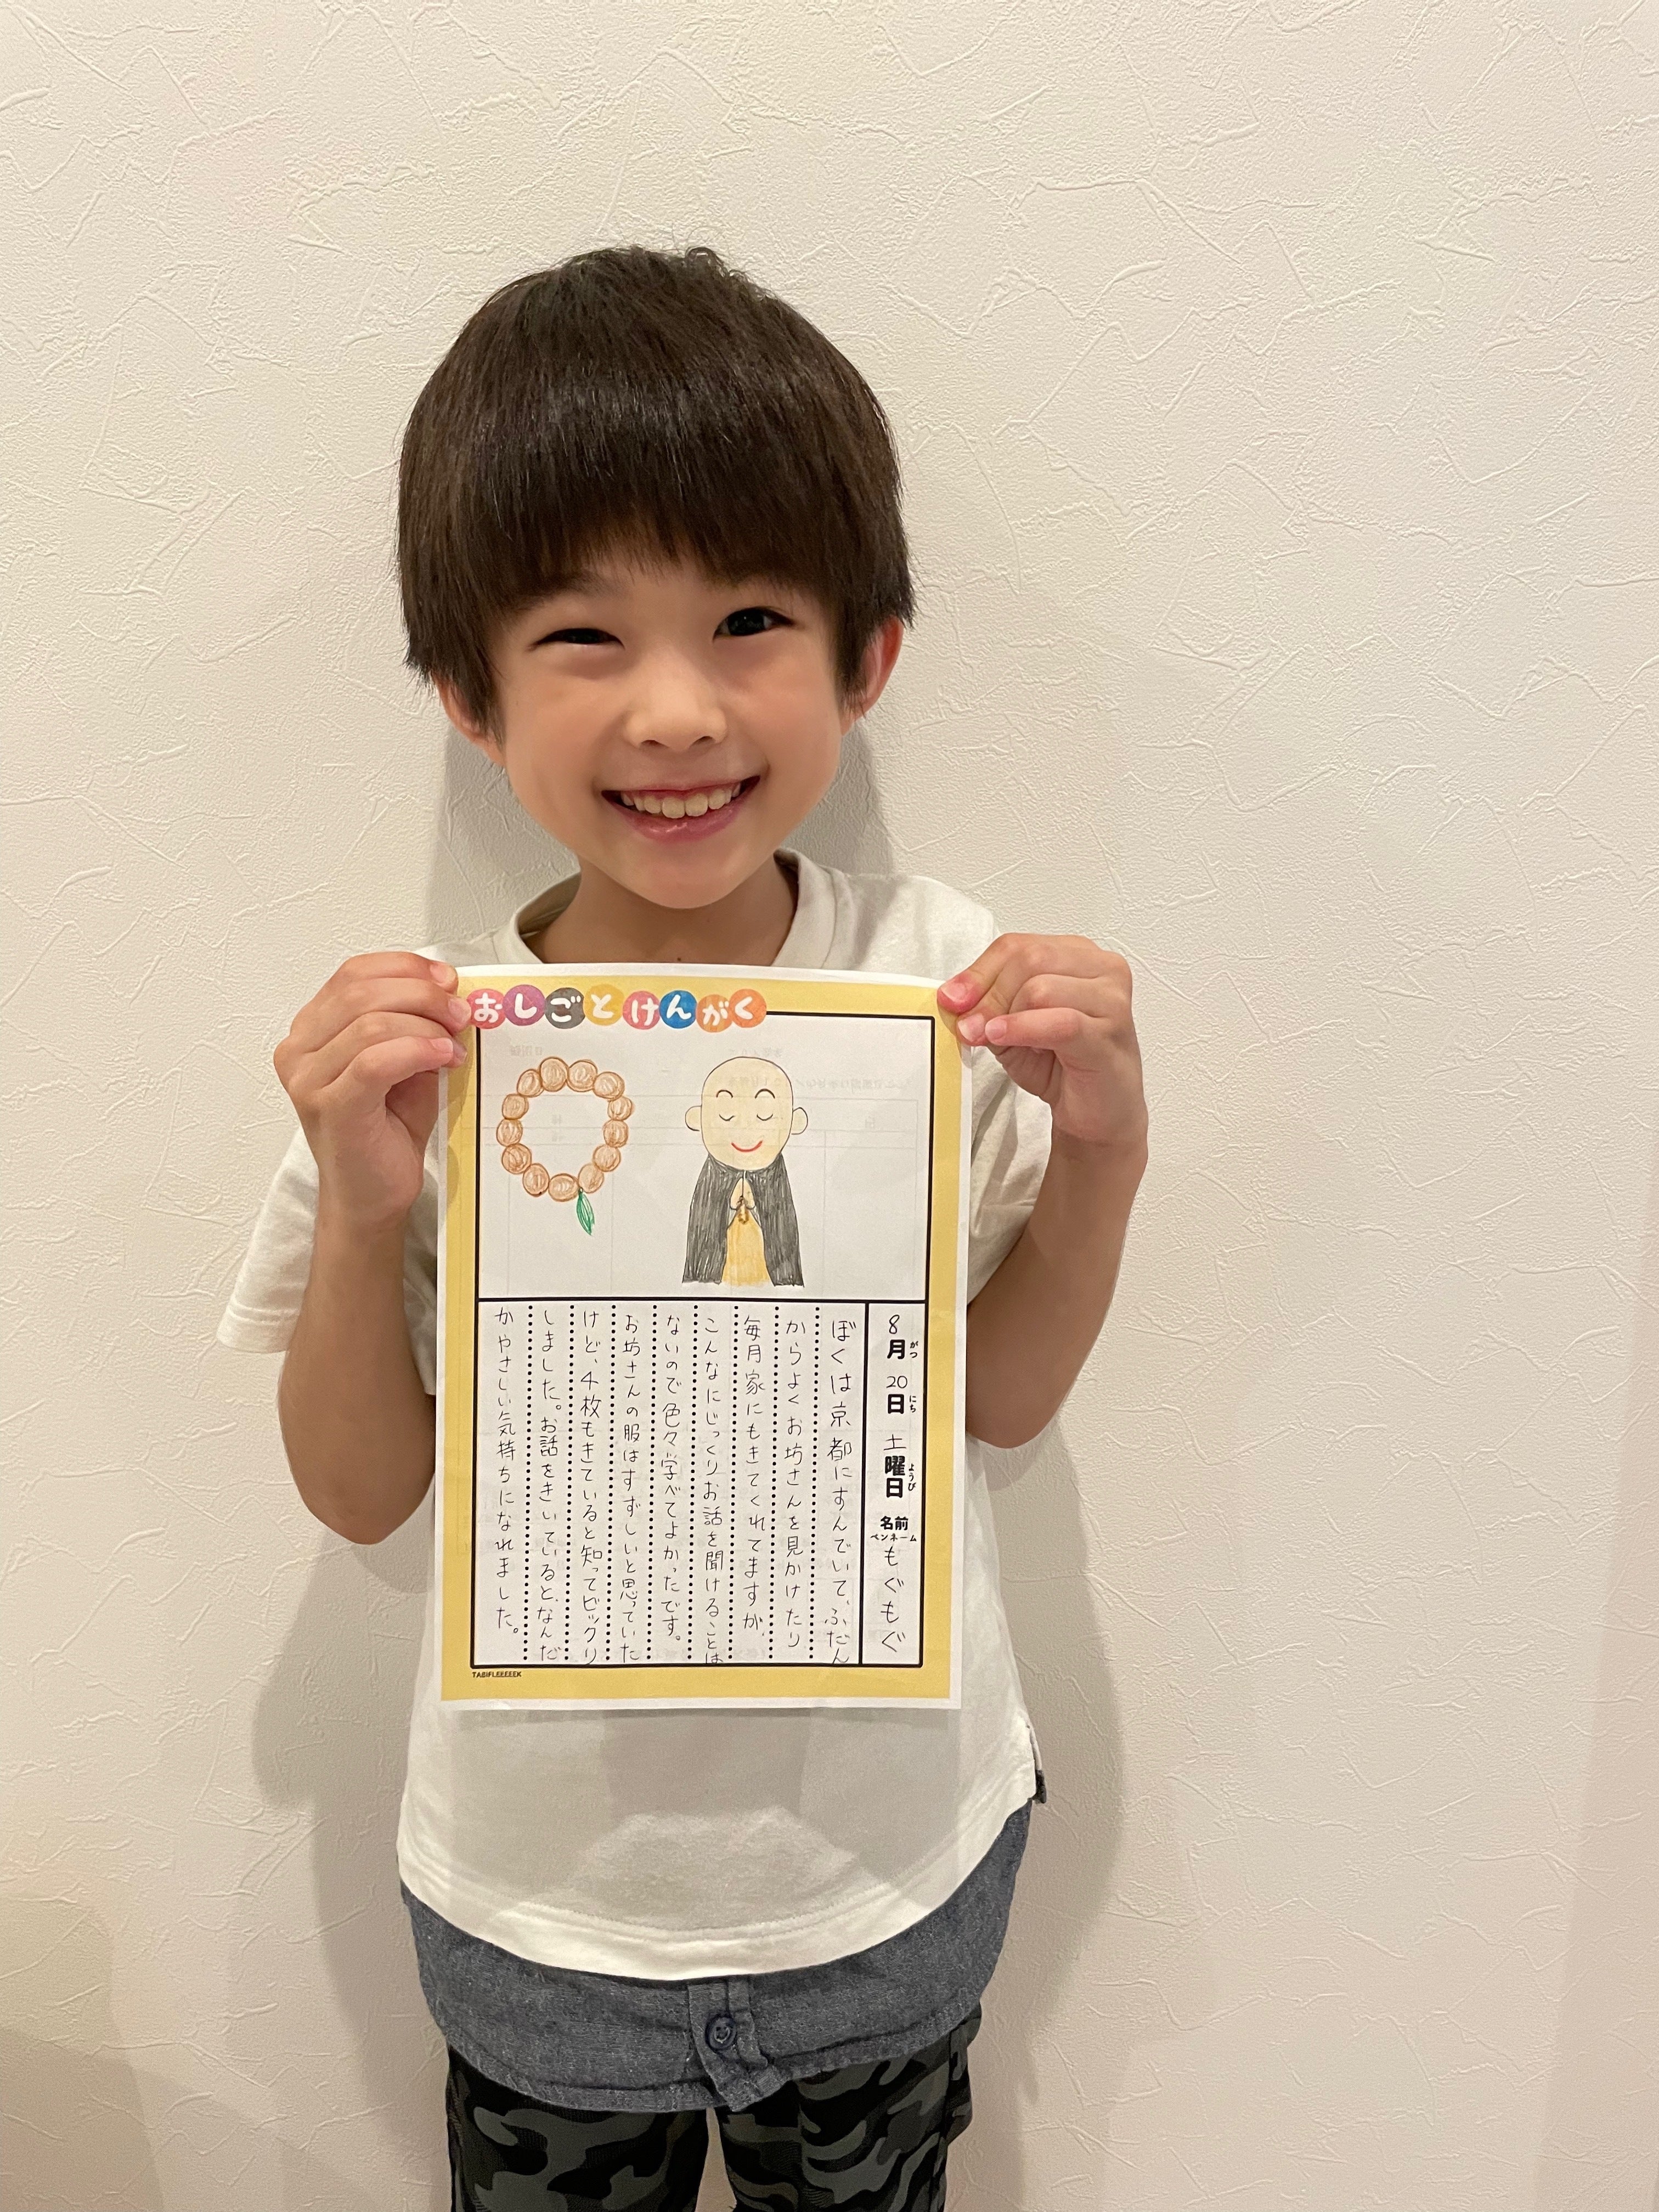 おしごとけんがく
8月20日土曜日 名前 もぐもぐ
がつ にち ようび ペンネーム
ぼくは京都にすんでいて、ふだん
からよくお坊さんを見かけたり
毎月家にもきてくれてますが、
こんなにじっくりお話を聞けることは
ないので色々学べてよかったです。
お坊さんの服はすずしいと思っていた
けど、4枚もきていると知ってビックリ
しました。お話をきいていると、なんだ
かやさしい気持ちになれました。
TABIFLEEEEEK